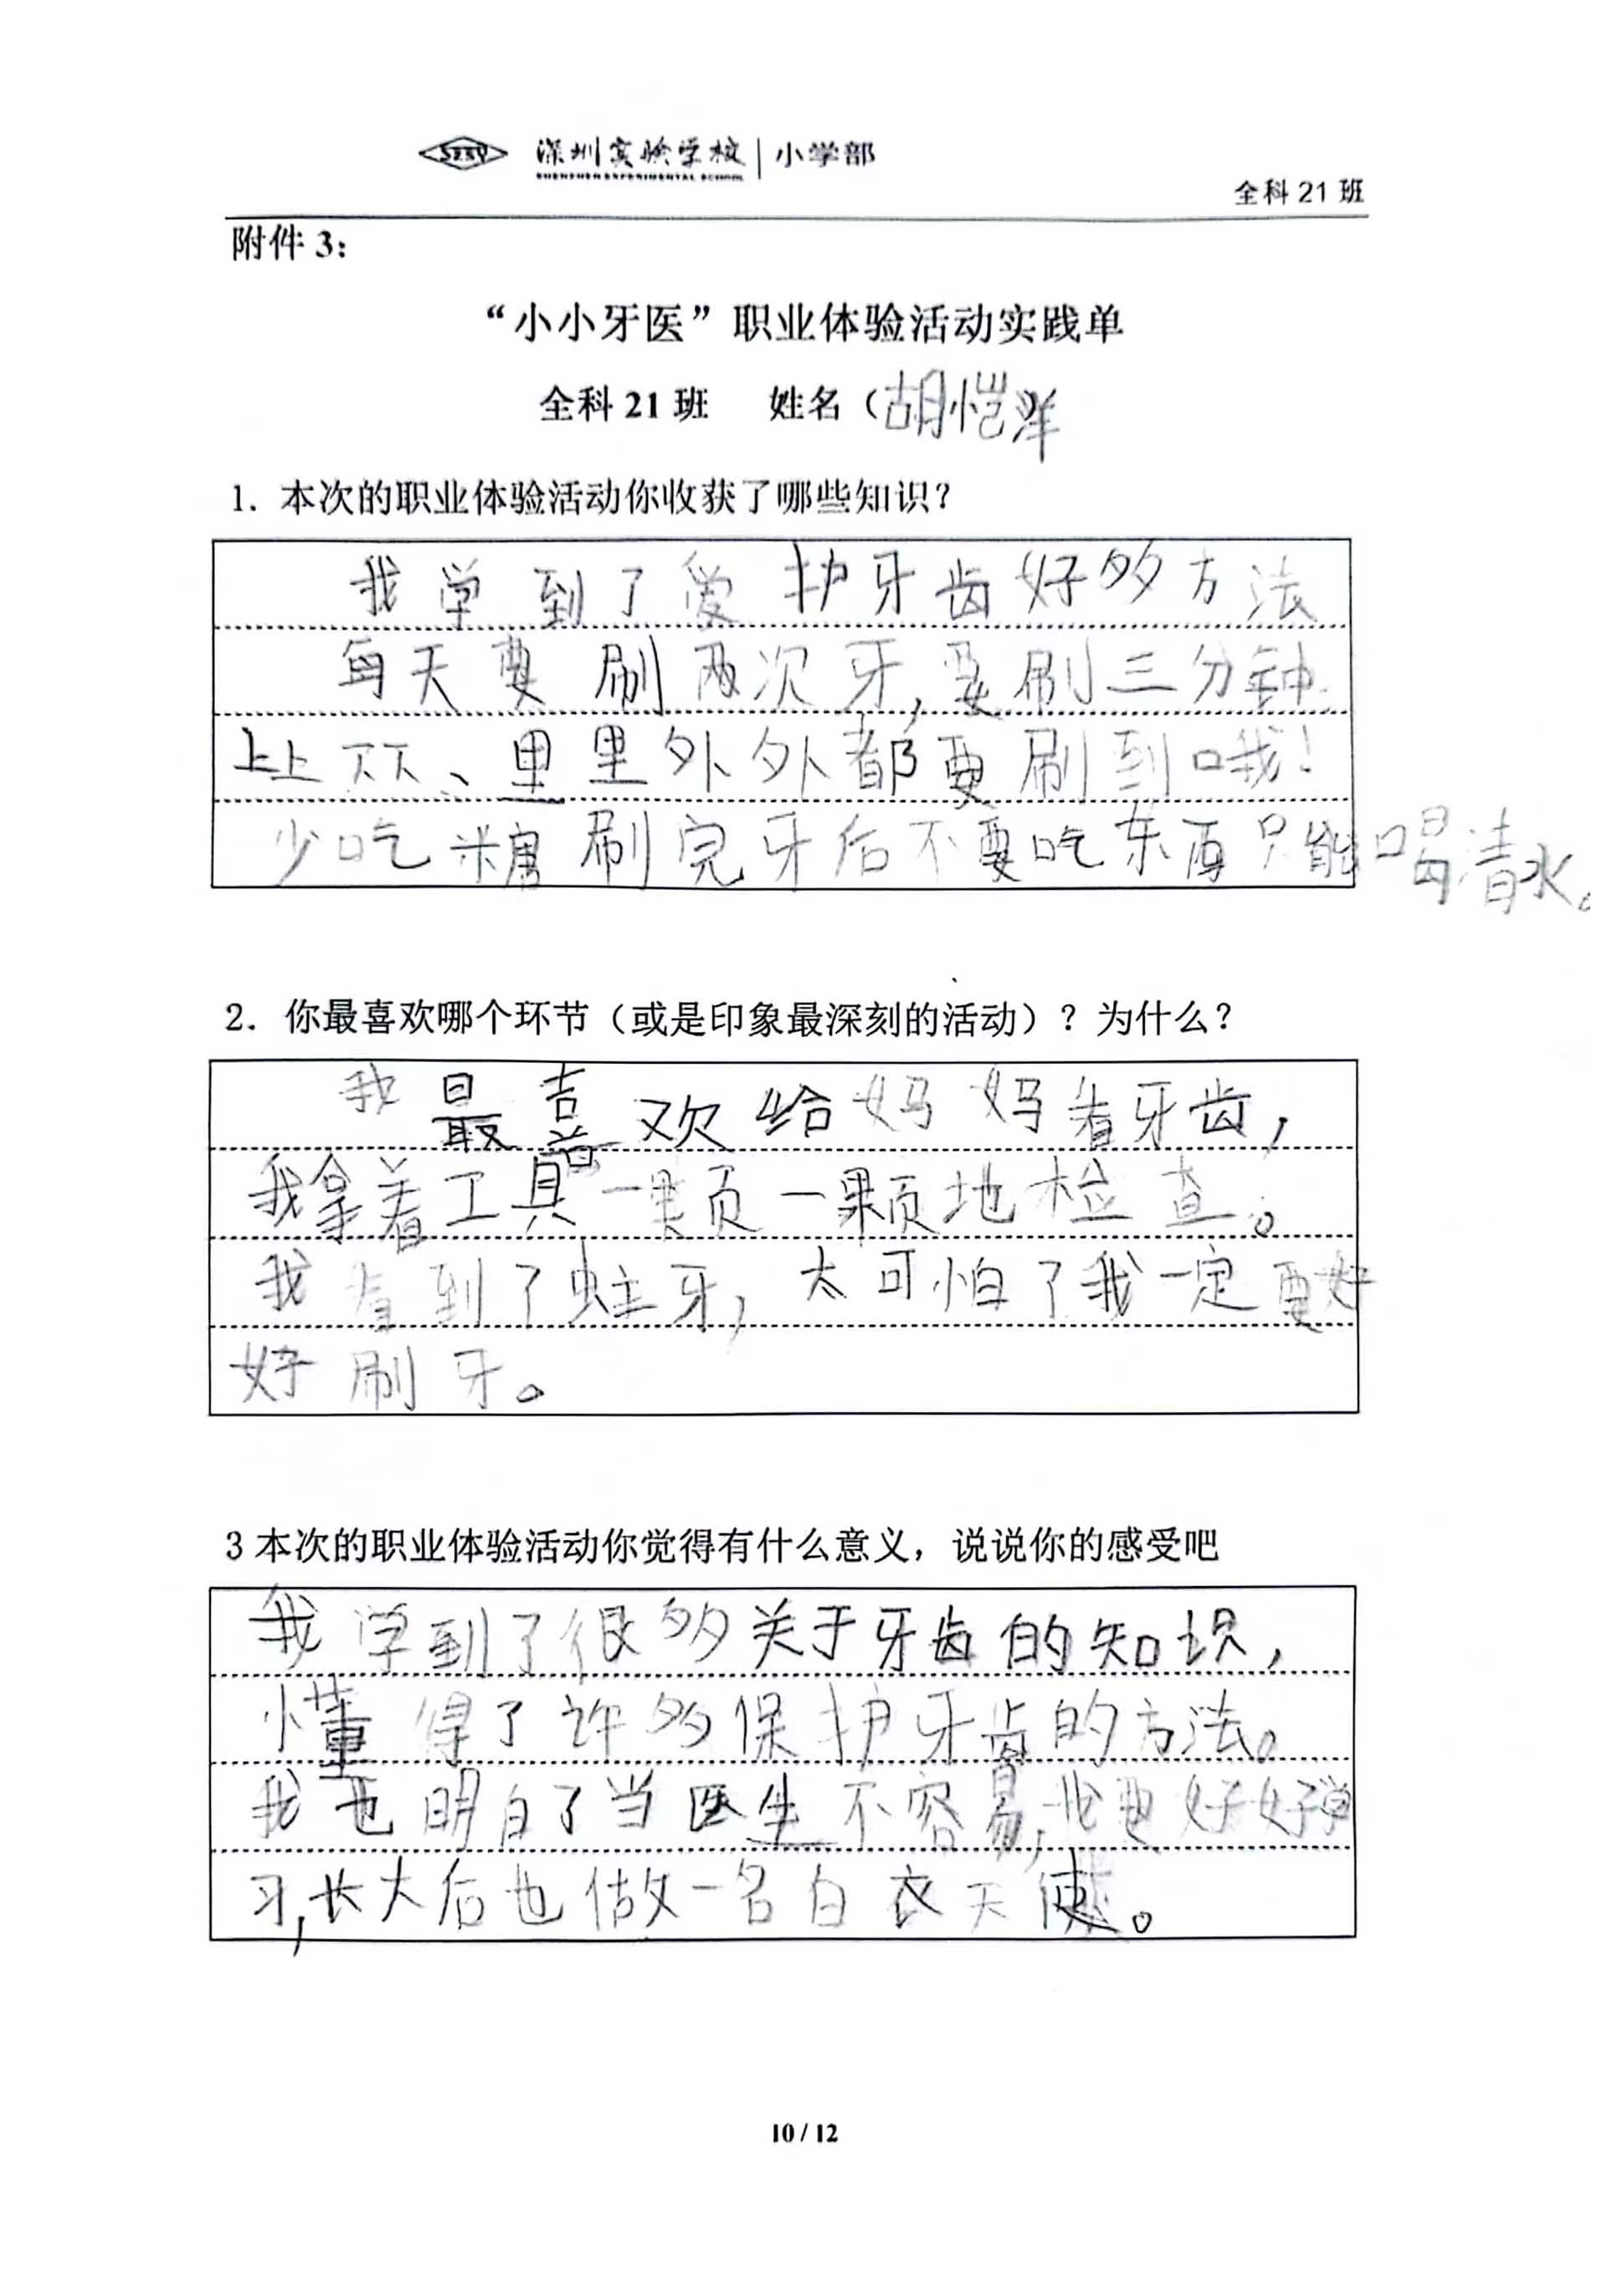 SZSY 深圳实验学校 | 小学部
SHENZHEN EXPERIMENTAL SCHOOL
全科 21 班
附件 3：
“小小牙医”职业体验活动实践单
全科 21 班 姓名（胡恺洋
1. 本次的职业体验活动你收获了哪些知识？
我学到了爱护牙齿好多方法
每天要刷两次牙,要刷三分钟.
上上下下、里里外外都要刷到哦！
少吃糖刷完牙后不要吃东西只能喝清水。
2. 你最喜欢哪个环节（或是印象最深刻的活动）？为什么？
我最喜欢给妈妈看牙齿，
我拿着工具一颗一颗地检查。
我看到了蛀牙，太可怕了我一定要好
好刷牙。
3 本次的职业体验活动你觉得有什么意义，说说你的感受吧
我学到了很多关于牙齿的知识，
懂得了许多保护牙齿的方法。
我也明白了当医生不容易,我也好好学
习,长大后也做一名白衣天使。
10 / 12